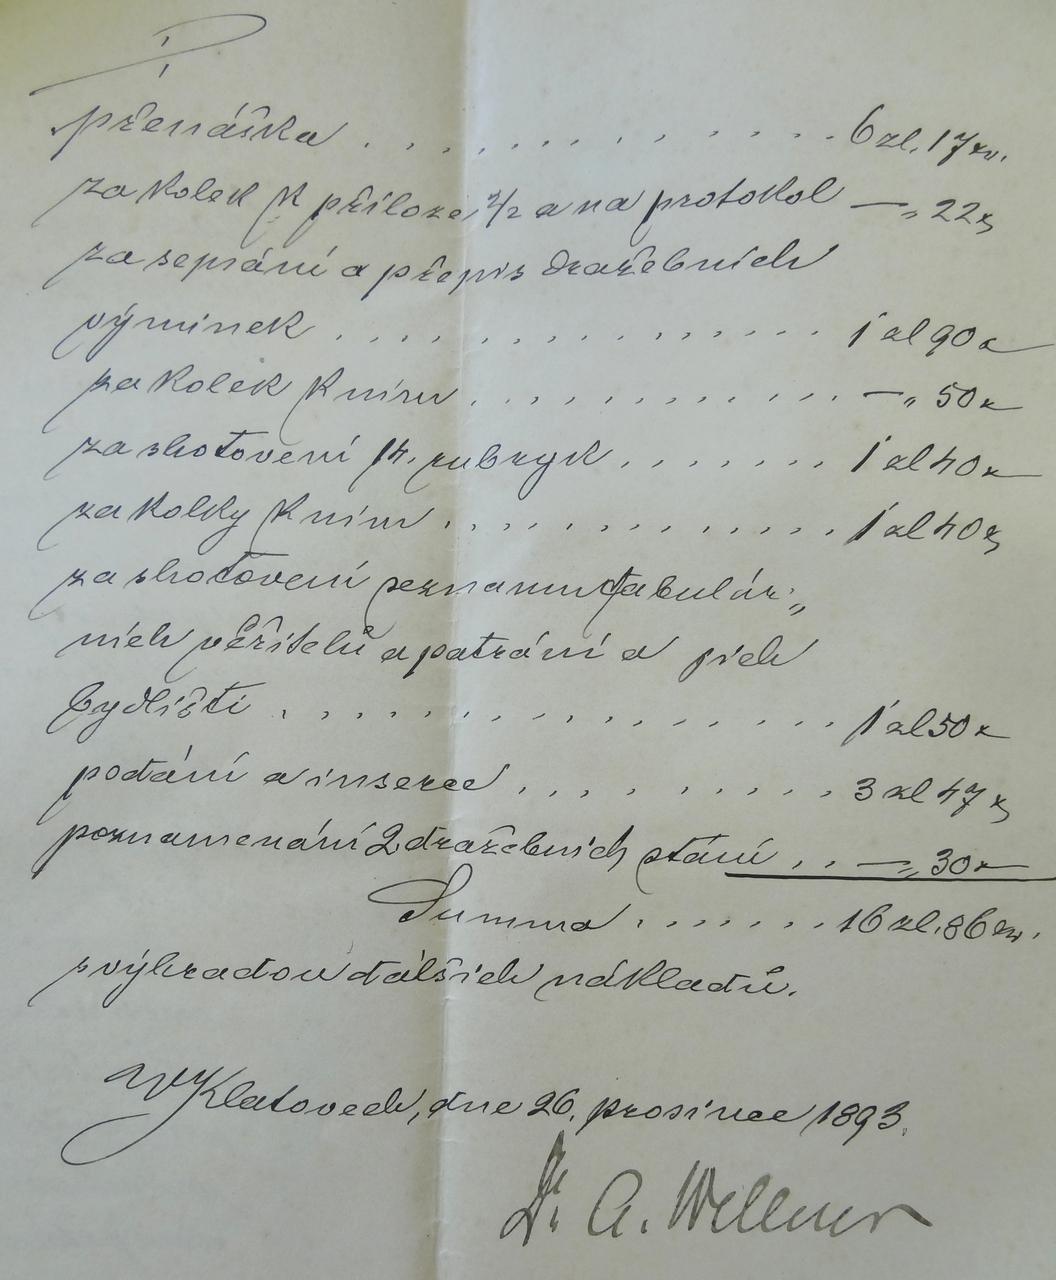 přenáška . . . . . . . . . . . . 6 zl. 17 kr.
za kolek k příloze 2/2 a na protokol —„ 22 k
za sepsání a přepis dražebních
výminek . . . . . . . . . . . . . . 1 zl 90 k
za kolek k nim . . . . . . . . . . . . —„ 50 k
za shotovení 14. rubryk . . . . . . . 1 zl 40 k
za kolky k nim . . . . . . . . . . . . 1 zl 40 k
za shotovení seznamu tabulár„
ních věřitelů a patrání a jich
bydlišti . . . . . . . . . . . . . . . 1 zl 50 k
podání a inserce . . . . . . . . . 3 zl 47 k
poznamenání 2 dražebních stání . . —„ 30 k
Summa . . . . . . . 16 zl. 86 kr.
s výhradou dalších nákladů.
V Klatovech, dne 26. prosince 1893.
Dr. A. Wellner